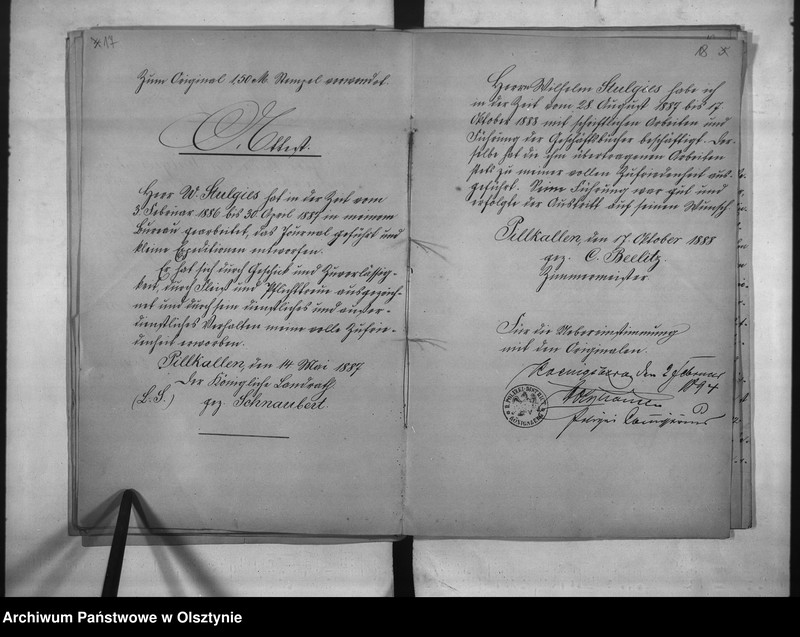 17
Zum Original 1,50 M. Stempel verwendet.
Attest.
Herr W. Stulgies hat in der Zeit vom
3. Februar 1886 bis 30. April 1887 in meinem
Bureau gearbeitet, das Journal geführt und
kleine Expeditionen entworfen.
Er hat sich durch Geschick und Zuverlässig-
keit, durch Fleiß und Pflichttreue ausgezeich-
net und durch sein dienstliches und außer-
dienstliches Verhalten meine volle Zufrie-
denheit erworben.
Pillkallen, den 14 Mai 1887
Der Königliche Landrath
(L. S.) gez. Schnaubert.
18
Herrn Wilhelm Stulgies habe ich
in der Zeit vom 28. August 1887 bis 17.
Oktober 1888 mit schriftlichen Arbeiten und
Führung der Geschäftsbücher beschäftigt. Der-
selbe hat die ihm übertragenen Arbeiten
stets zu meiner vollen Zufriedenheit aus-
geführt. Seine Führung war gut und
erfolgte der Austritt auf seinen Wunsch
Pillkallen, den 17. Oktober 1888
gez. C. Beelitz.
Zimmermeister.
Für die Uebereinstimmung
mit den Originalen.
den 2 Februar
1894
Archiwum Państwowe w Olsztynie